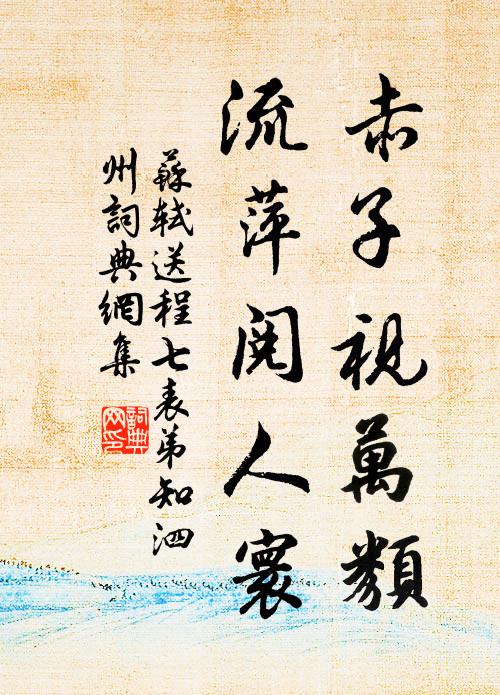 赤子視萬類
流萍閱人寰
蘇軾送程七表弟知泗
州詞典網集
詞典
网印